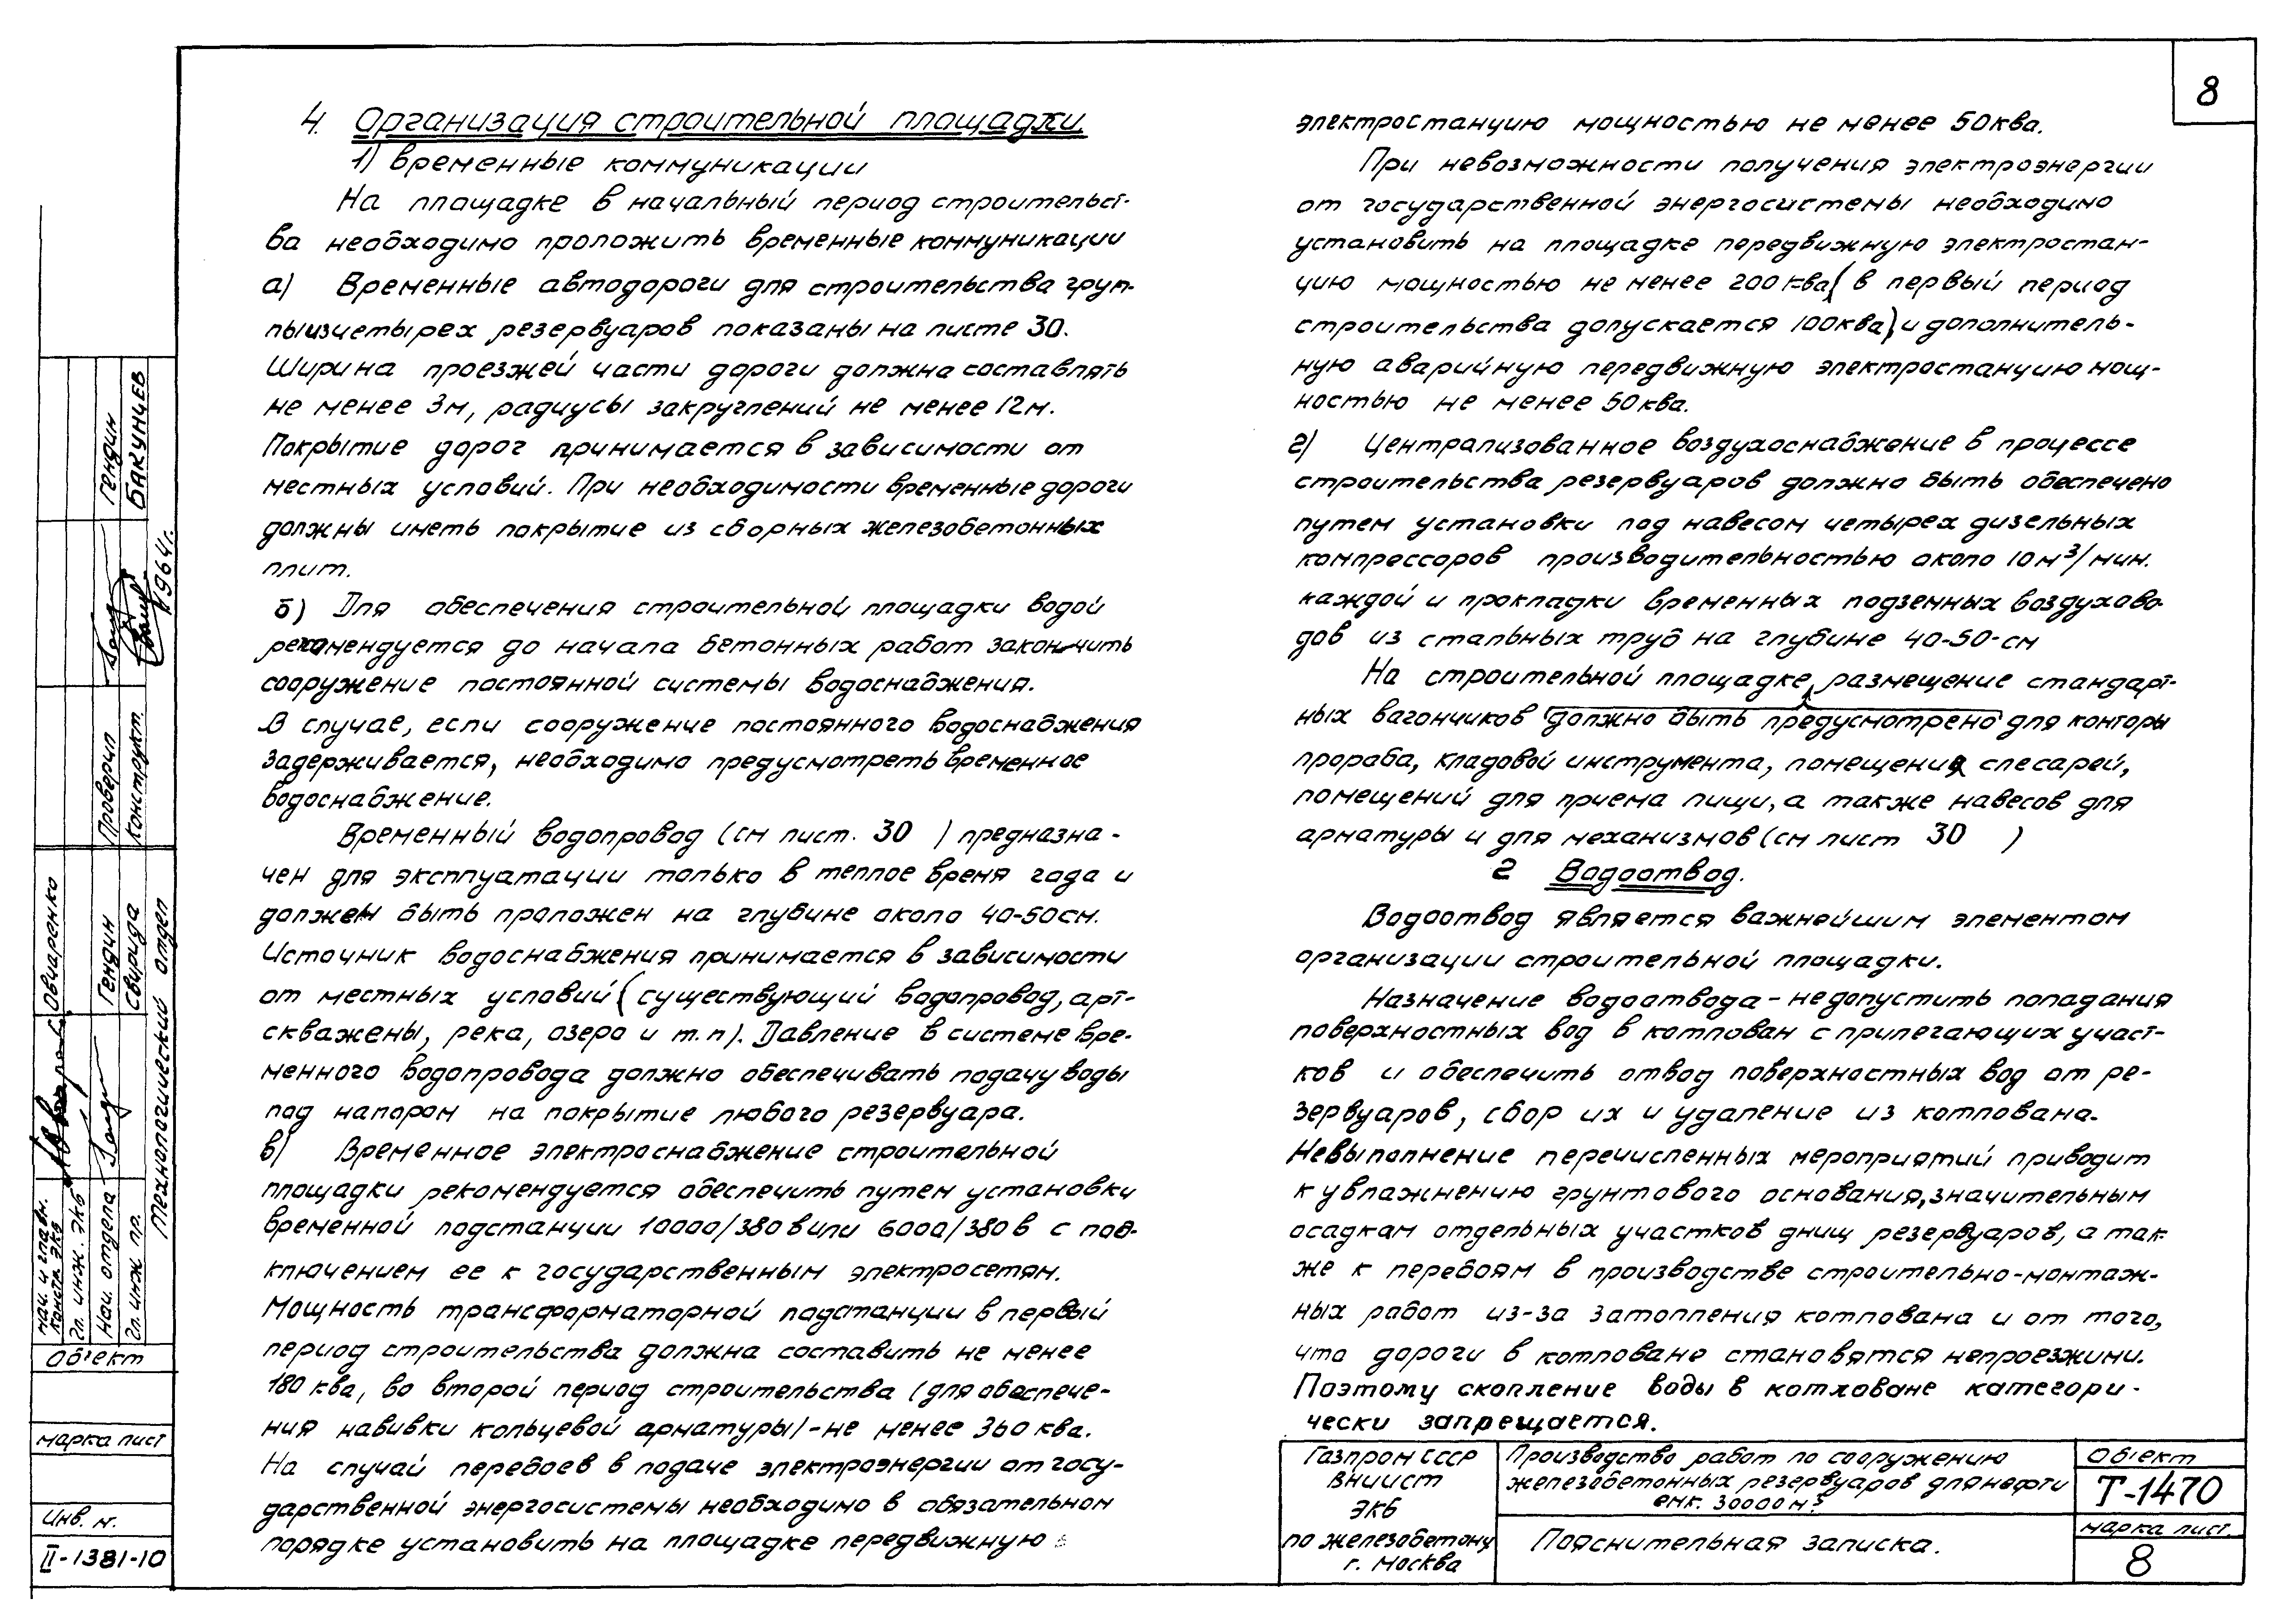 8
4. Организация строительной площадки.
1) временные коммуникации
На площадке в начальный период строительст-
ва необходимо проложить временные коммуникации
а) Временные автодороги для строительства груп-
пы из четырех резервуаров показаны на листе 30.
Ширина проезжей части дороги должна составлять
не менее 3м, радиусы закруглений не менее 12м.
Покрытие дорог принимается в зависимости от
местных условий. При необходимости временные дороги
должны иметь покрытие из сборных железобетонных
плит.
б) Для обеспечения строительной площадки водой
рекомендуется до начала бетонных работ закончить
сооружение постоянной системы водоснабжения.
В случае, если сооружение постоянного водоснабжения
задерживается, необходимо предусмотреть временное
водоснабжение.
Временный водопровод (см лист. 30 ) предназна-
чен для эксплуатации только в теплое время года и
должен быть проложен на глубине около 40-50см.
Источник водоснабжения принимается в зависимости
от местных условий (существующий водопровод, арт-
скважены, река, озеро и т.п). Давление в системе вре-
менного водопровода должно обеспечивать подачу воды
под напором на покрытие любого резервуара.
в) Временное электроснабжение строительной
площадки рекомендуется обеспечить путем установки
временной подстанции 10000/380 в или 6000/380 в с под-
ключением ее к государственным электросетям.
Мощность трансформаторной подстанции в первый
период строительства должна составить не менее
180 ква, во второй период строительства (для обеспече-
ния навивки кольцевой арматуры)-не менее 360 ква.
На случай перебоев в подаче электроэнергии от госу-
дарственной энергосистемы необходимо в обязательном
порядке установить на площадке передвижную
электростанцию мощностью не менее 50ква.
При невозможности получения электроэнергии
от государственной энергосистемы необходимо
установить на площадке передвижную электростан-
цию мощностью не менее 200 ква (в первый период
строительства допускается 100ква) и дополнитель-
ную аварийную передвижную электростанцию мощ-
ностью не менее 50 ква.
г) Централизованное воздухоснабжение в процессе
строительства резервуаров должно быть обеспечено
путем установки под навесом четырех дизельных
компрессоров производительностью около 10 м³/мин.
каждой и прокладки временных подземных воздухово-
дов из стальных труб на глубине 40-50-см
На строительной площадке размещение стандарт-
ных вагончиков должно быть предусмотрено для конторы
прораба, кладовой инструмента, помещения слесарей,
помещений для приема пищи, а также навесов для
арматуры и для механизмов (см лист 30 )
2 Водоотвод.
Водоотвод является важнейшим элементом
организации строительной площадки.
Назначение водоотвода - недопустить попадания
поверхностных вод в котлован с прилегающих участ-
ков и обеспечить отвод поверхностных вод от ре-
зервуаров, сбор их и удаление из котлована.
Невыполнение перечисленных мероприятий приводит
к увлажнению грунтового основания, значительным
осадкам отдельных участков днищ резервуаров, а так
же к перебоям в производстве строительно-монтаж-
ных работ из-за затопления котлована и от того,
что дороги в котловане становятся непроезжими.
Поэтому скопление воды в котловане категори-
чески запрещается.
Газпром СССР
ВНИИСТ
ЭКБ
по железобетону
г. Москва
Производство работ по сооружению
железобетонных резервуаров для нефти
емк. 30000 м³
Пояснительная записка.
Объект
Т-1470
марка лист.
8
Гендин
Бакунцев
1964г.
Проверил
Конструкт.
Овчаренко
Гендин
Свирида
Технологический отдел
Нач. и главн.
конст. ЭКБ
Гл. инж. ЭКБ
Нач. отдела
Гл. инж пр.
Объект
марка лист
Инв. н.
II-1381-10